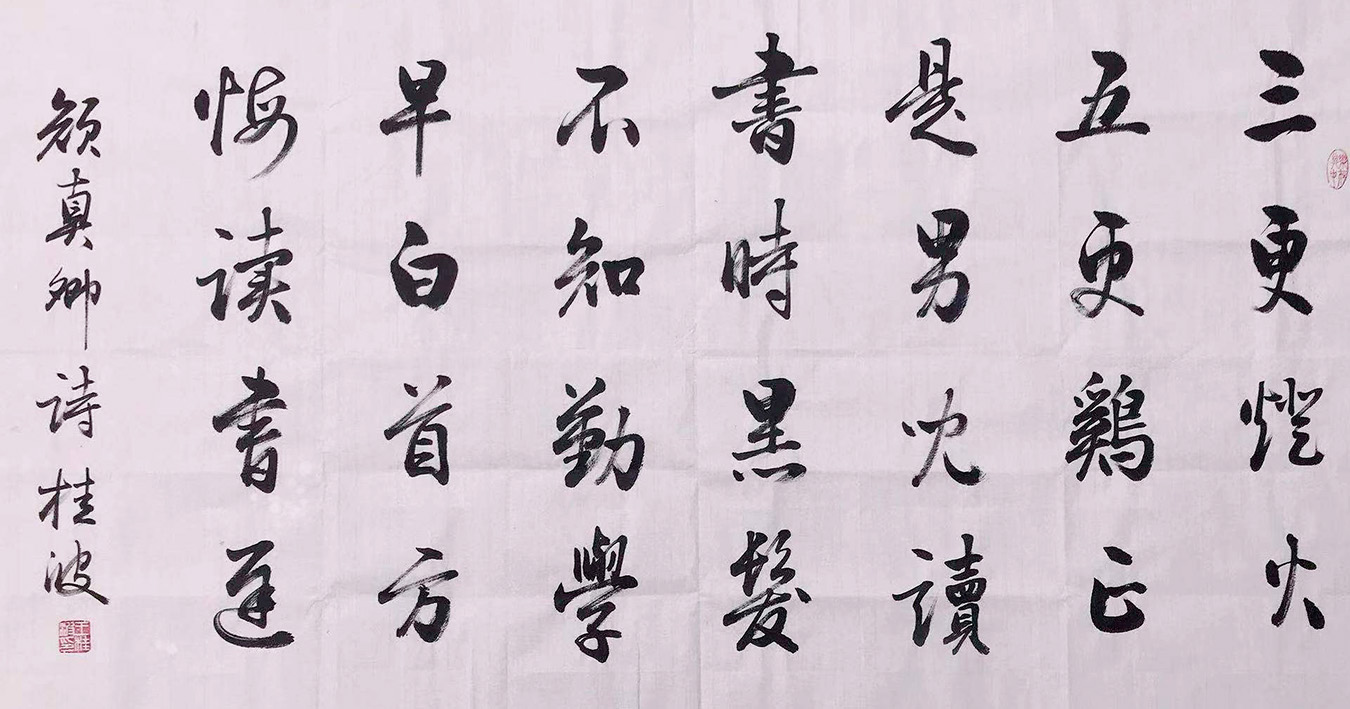 三更燈火
五更鷄正
是男兒讀
書時黑髮
不知勤學
早白首方
悔读書遲
颜真卿诗桂波